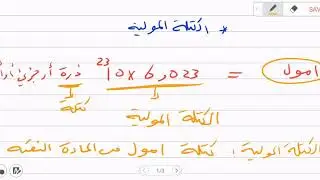 SAV
* الكتلة المولية
1 مول = 6,023 × 10²³ ذرة أو جزيء أو أ
الكتلة المولية كتلة
الكتلة المولية : كتلة 1 مول من المادة النقية
1/3